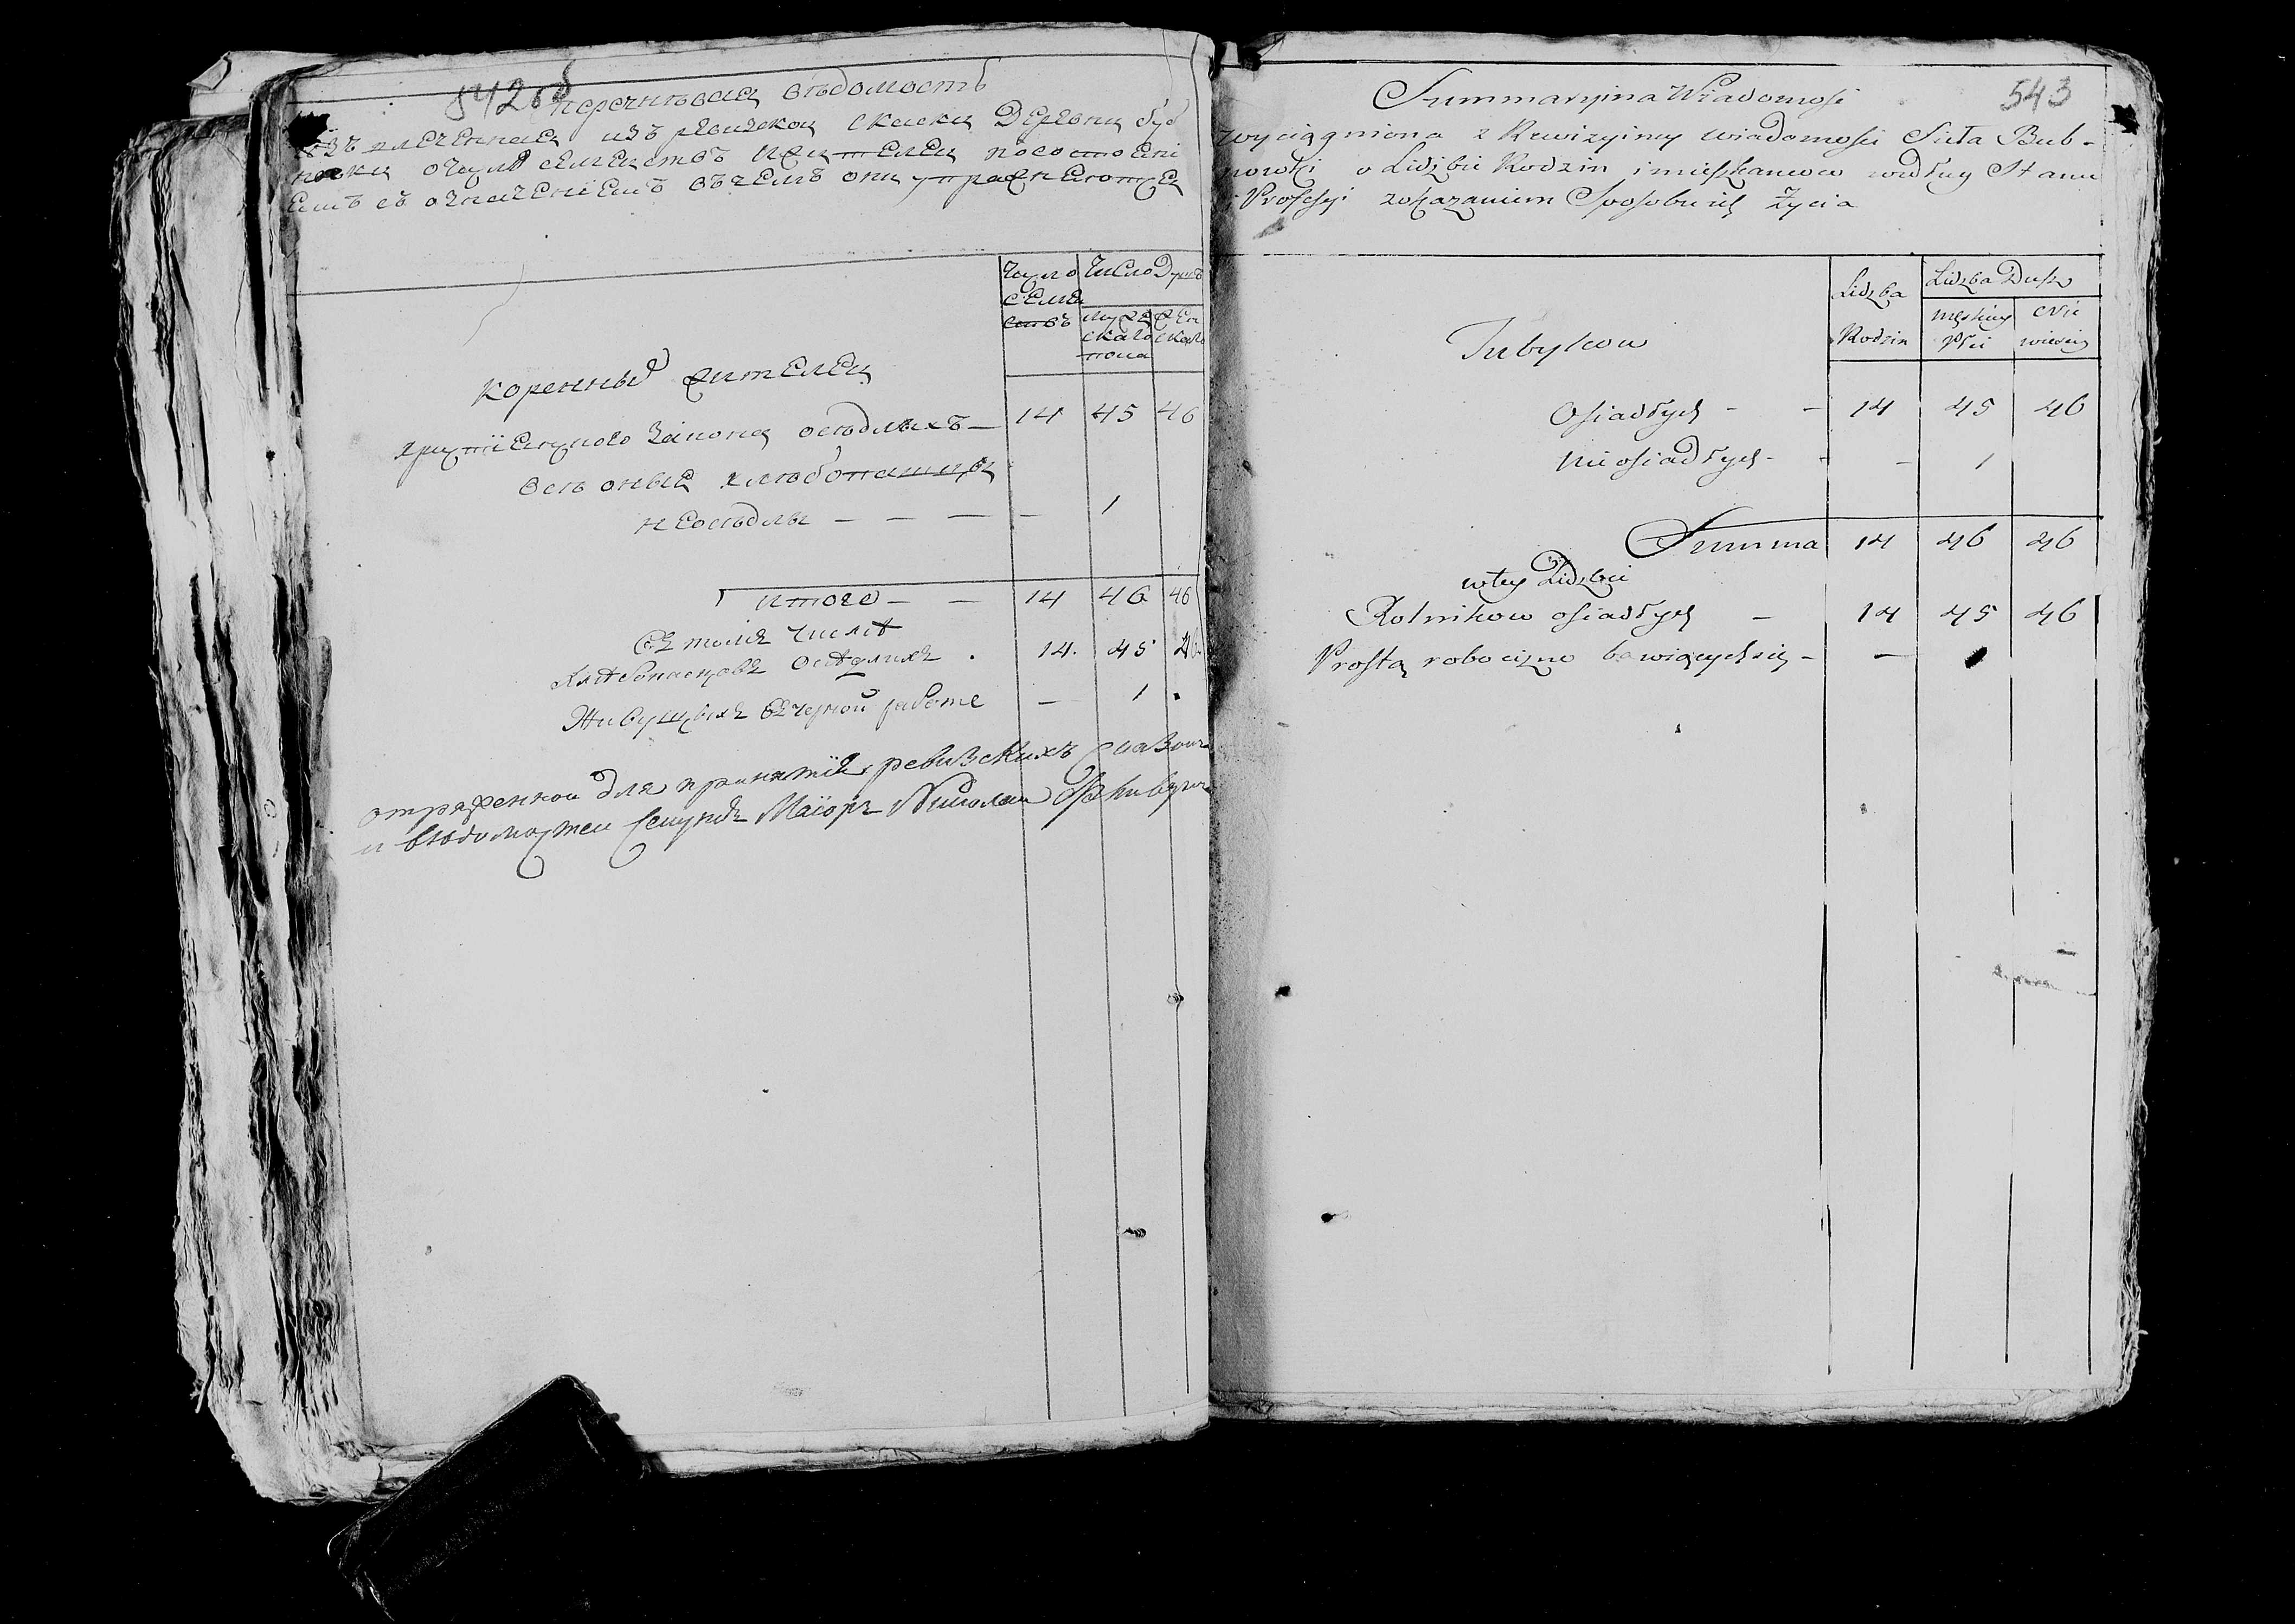 542об
перечневая ведомость
извлеченная изъ ревизской скаски Деревни буб
новки о числе семействъ и жителей по состоянї
емъ съ означенїемъ въ чемъ они упражняютца
Число Число Душъ
семей
ствъ мужескаго пола женскаго
коренные жители
христїенского закона оседлыхъ — 14 45 46
все оные хлебопашцы
неоседлы — — — — 1
итого — — 14 46 46
Въ томъ числѣ
Хлѣбопасцовъ осѣдлихъ . 14. 45 46
Живущихъ въ черной работе — 1
отряженной для принятїя ревизскихъ сказокъ
и ведомостей Секундъ Маїоръ Николай
Summaryina Wiadomość 543
wyciągniona z Rewizyiney wiadomości Sioła Bub-
nowki o Liczbie Rodzin i mieszkancow według Stanu
i Professyi z okazaniem Sposobu ich Życia
Liczba Rodzin Liczba Dusz
męskiey Płci Nie wieściey
Tubylcow
Osiadłych - - 14 45 46
Nieosiadłych - - - 1
Summa 14 46 46
w tey Liczbie
Rolnikow osiadłych — 14 45 46
Prostą robocizno bawiących się - — 1